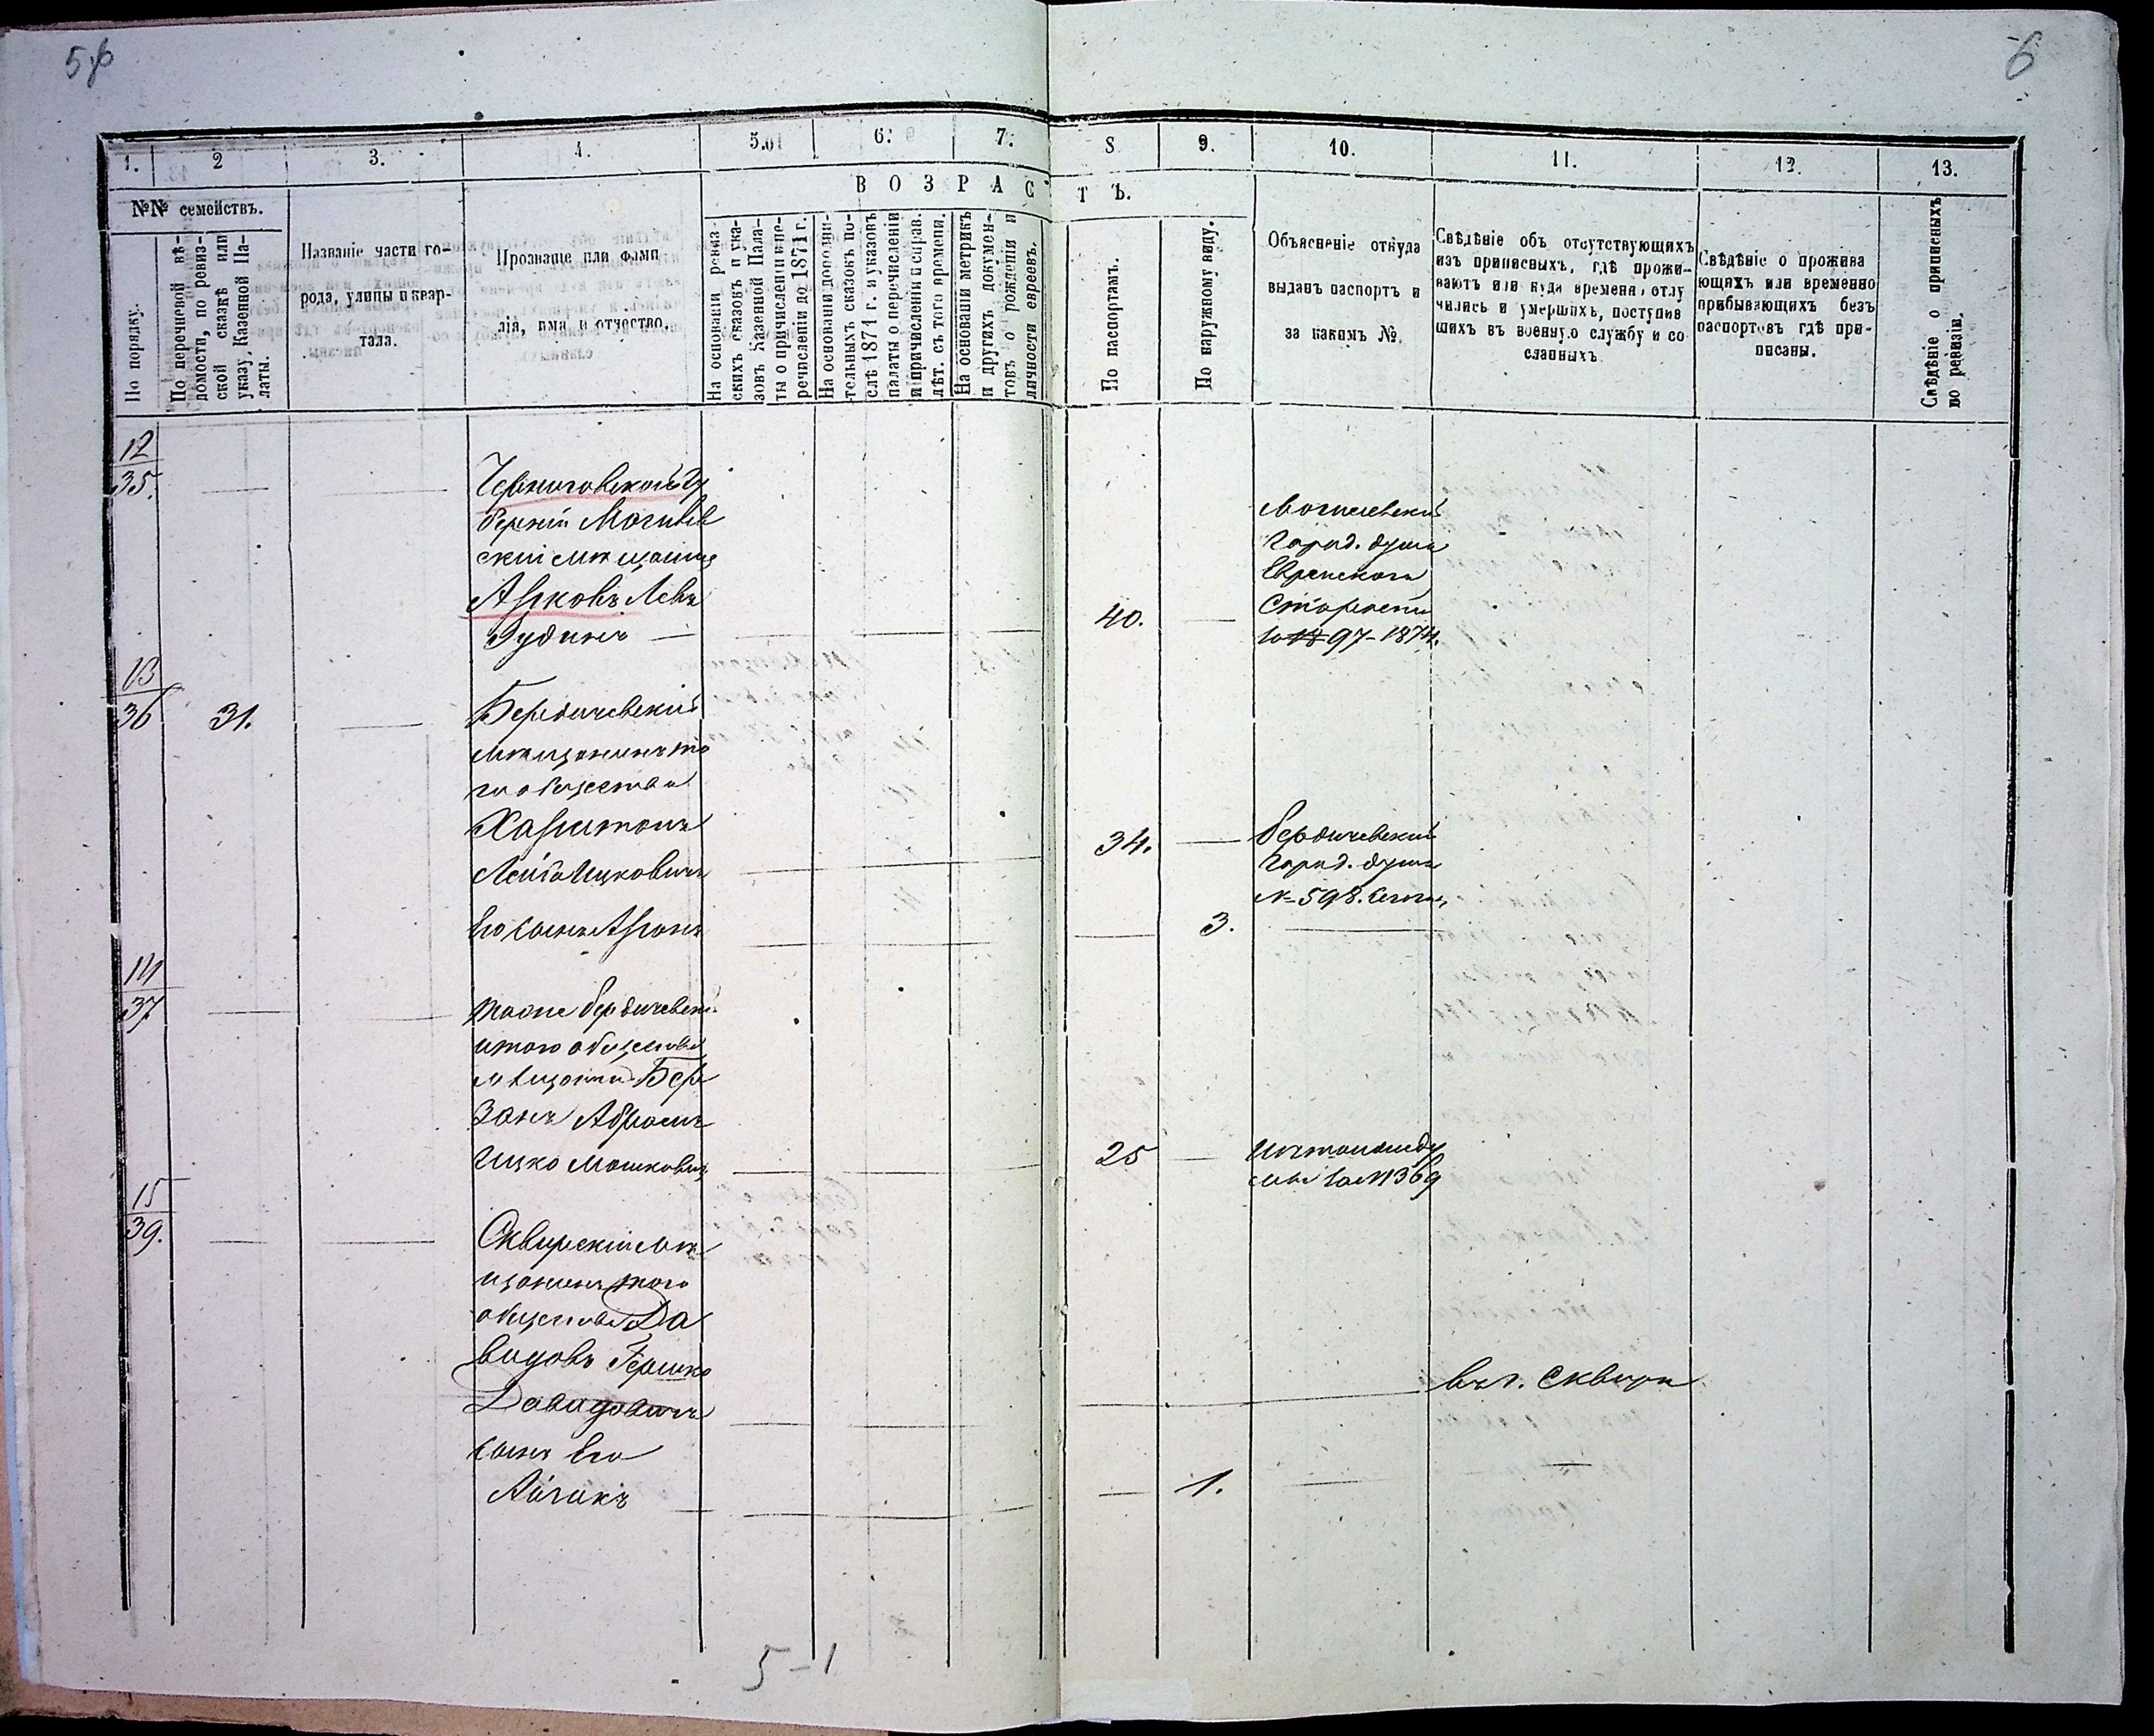 6
1. 2 3. 4. 5. 6. 7. 8 9. 10. 11. 12. 13.
В О З Р А С Т Ъ.
№№ семействъ.
По порядку.
По перечневой вѣ-
домости, по ревиз-
ской сказкѣ или
указу, Казенной Па-
латы.
Названіе части го-
рода, улицы и квар-
тала.
Прозваніе или фами
лія, имя и отчество.
На основаніи ревиз-
скихъ сказокъ и ука-
зовъ Казенной Пала-
ты о причисленіи и пе-
речисленіи до 1871 г.
На основаніи дополни-
тельныхъ сказокъ по-
слѣ 1871 г. и указовъ
палаты о перечисленіи
и причисленіи и справ.
лѣт. съ того времени.
На основаніи метрикъ
и другихъ докумен-
товъ о рожденіи и
личности евреевъ.
По паспортамъ.
По наружному виду.
Объясненіе откуда
выданъ паспортъ и
за какимъ №.
Свѣдѣніе объ отсутствующихъ
изъ приписныхъ, гдѣ прожи-
ваютъ или куда времена, отлу
чились и умершихъ, поступив
шихъ въ военную службу и со
сланныхъ
Свѣдѣніе о прожива
ющихъ или временно
прибывающихъ безъ
паспортовъ гдѣ при-
писаны.
Свѣдѣніе о приписныхъ
по ревизіи.
12
35.
Черниговской Гу
берніи Могилев
скій мѣщанинъ
Левъ
40.
Могилевской
Город. думы
Еврейскаго
Старосты
97-1874.
13
36 31.
Бердичевскій
мѣщанинъ то
го общества
Харитонъ
Лейба Ицковичъ
34.
Бердичевской
Город. думы
№ 598.
Его сынъ Аронъ
3.
14
37
тоже Бердичевскій
итого общества
мѣщанинъ Бер
занъ Абрамъ
Ицко Мошковичъ
25
№ 369
15
39.
Сквирскій мѣ
щанинъ того
общества Да
видовъ Гершко
Давидовичъ
въ г. Сквирѣ
сынъ Его
Айзикъ
1.
5-1